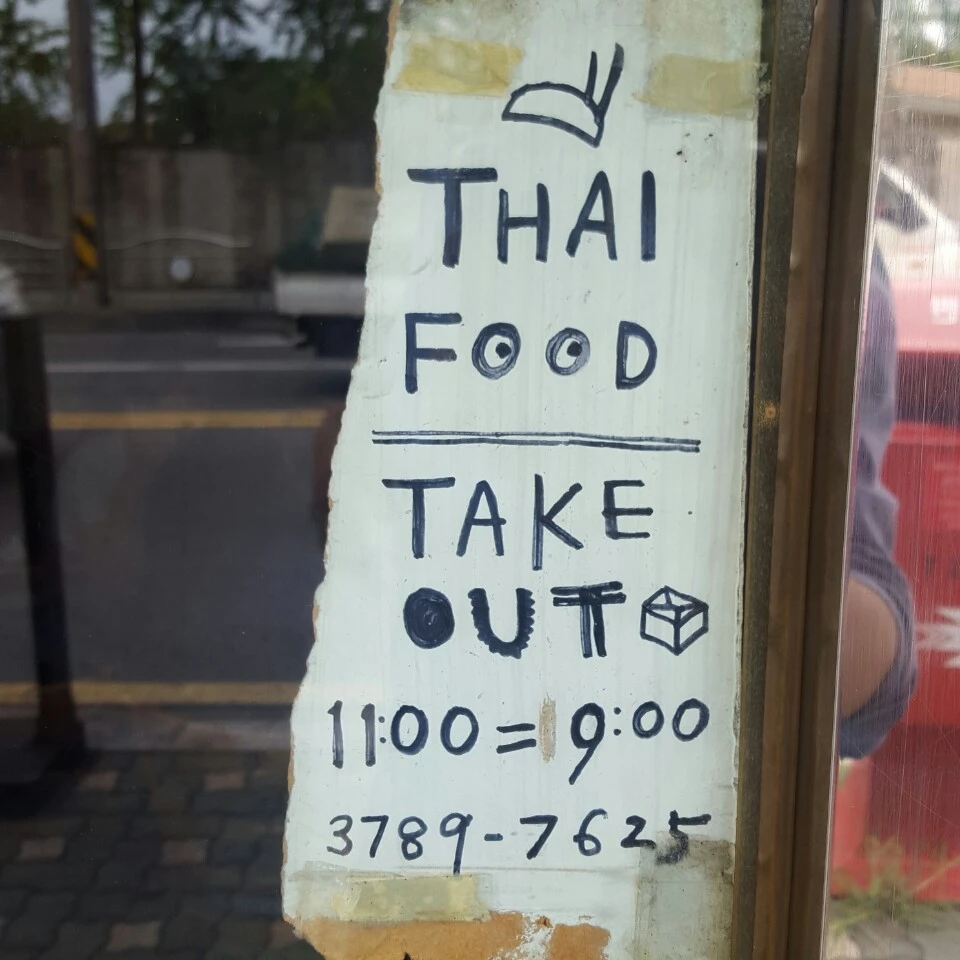 THAI
FOOD
TAKE
OUT
11:00 = 9:00
3789-7625